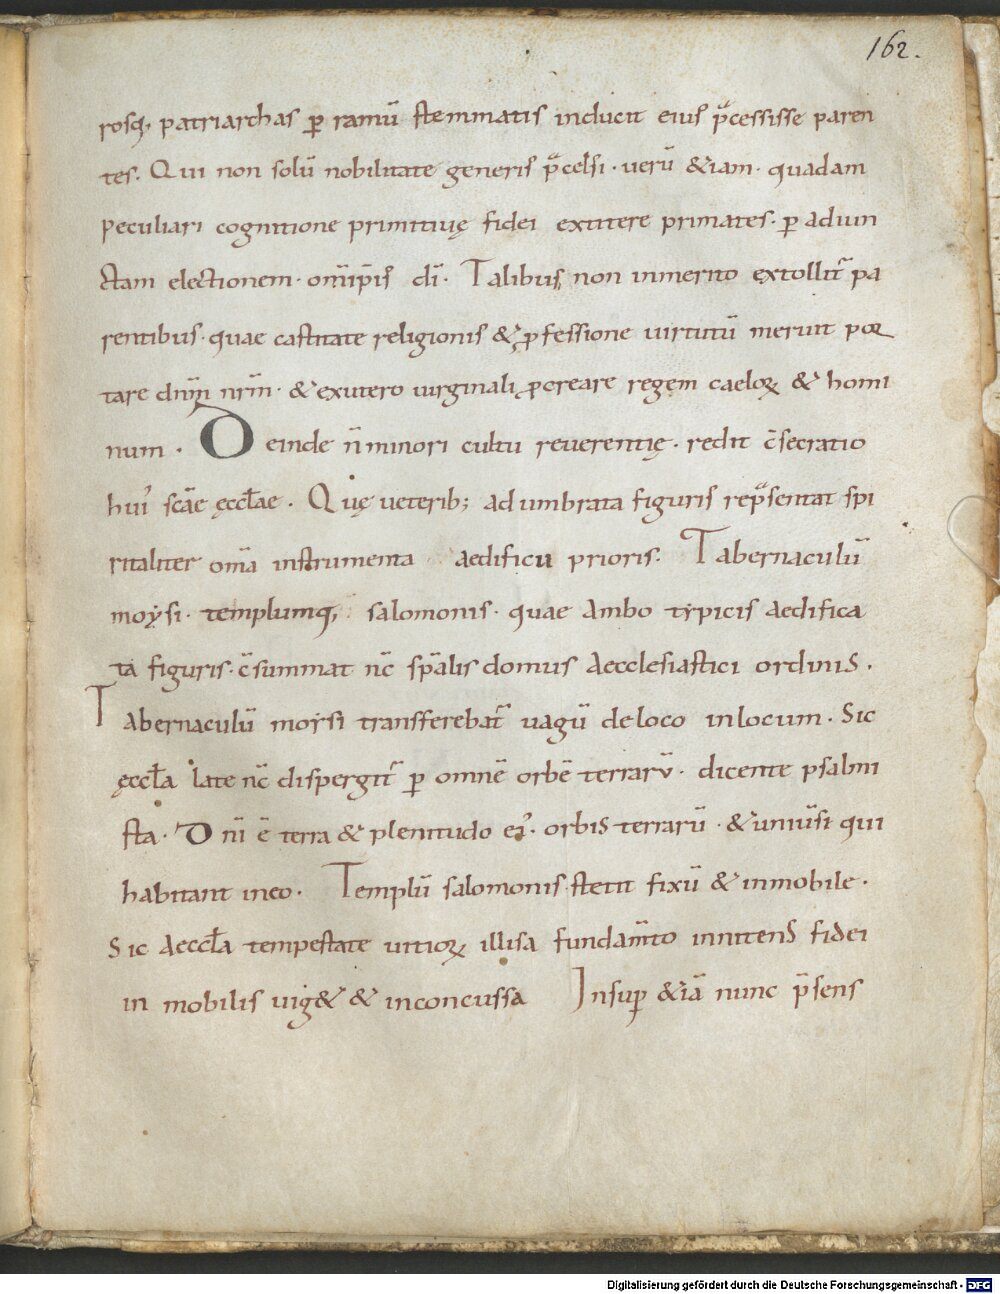 162.
rosq; patriarchas ꝑ ramū stemmatis inducit eius p̄cessisse paren
tes. Qui non solū nobilitate generis p̄celsi · uerū &iam · quadam
peculiari cognitione primitiuę fidei extitere primates · ꝑ adiun
ctam electionem · om̄ip̄is dī · Talibus non inmerito extollit̄ pa
rentibus · quae castitate religionis & ꝓfessione uirtutū meruit por
tare dn̄m nr̄m · & exutero uirginali ꝓcreare regem caeloꝝ & homi
num · Deinde n̄ minori cultu reuerentię · redit c̄secratio
hui᾽ scāe ęccl̄ae · Quę ueterib; adumbrata figuris rep̄sentat spi
ritaliter om̄a instrumenta aedificii prioris. Tabernaculū
moẏsi · templumq; salomonis · quae ambo tẏpicis aedifica
ta figuris · c̄summat nc̄ sp̄alis domus aecclesiastici ordinis .
Tabernaculū moẏsi transferebat̄ uagū deloco inlocum · Sic
ęccl̄a late nc̄ dispergit̄ ꝑ omnē orbē terrarū · dicente psalmi
sta · Dnī ē terra & plenitudo ei᾽ · orbis terrarū · & uniūsi qui
habitant ineo · Templū salomonis stetit fixū & inmobile ·
Sic aeccl̄a tempestate uitioꝝ illisa fundam̄to innitens fidei
in mobilis uig& & inconcussa Insuꝑ &iā nunc p̄sens
Digitalisierung gefördert durch die Deutsche Forschungsgemeinschaft - DFG